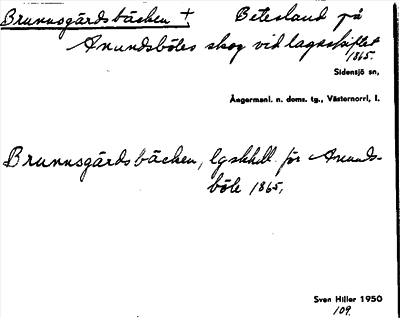 Brunnsgårdsbäcken + Betesland på
Anundsböles skog vid lagaskiftet
1865.
Sidensjö sn,
Ångermanl. n. doms. tg., Västernorrl. l.
Brunnsgårdsbäcken, lgskhdl. för Anunds-
böle 1865.
Sven Hiller 1950
109.